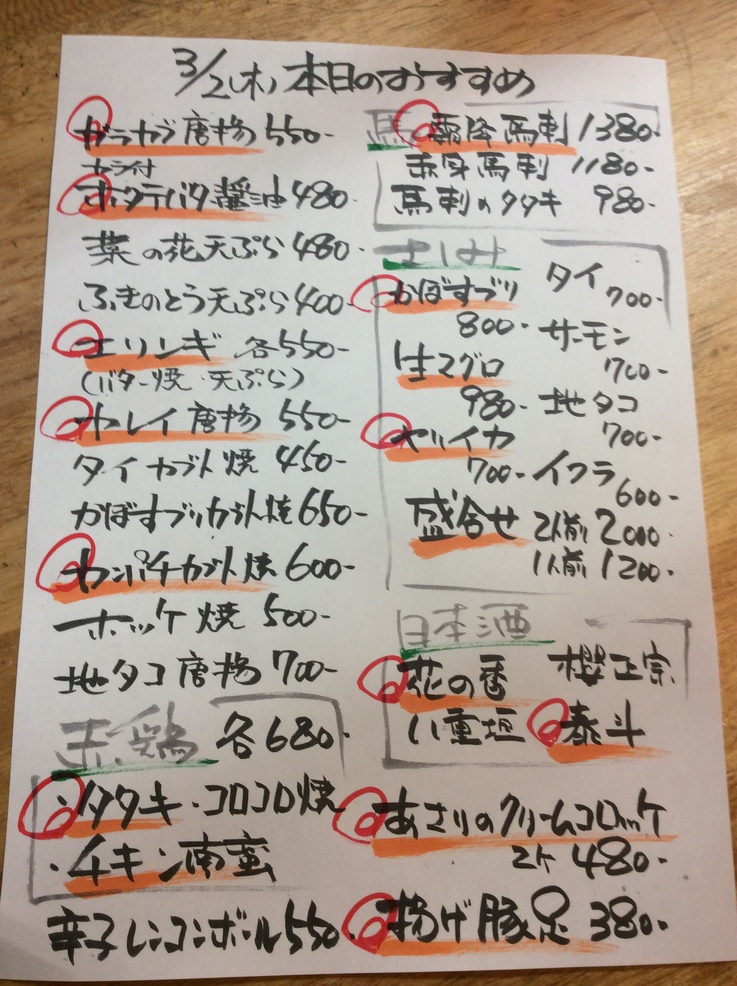 3/2(木)本日のおすすめ
ガラカブ唐揚550-
カライ付
ホタテバタ醤油480-
菜の花天ぷら480-
ふきのとう天ぷら400-
エリンギ 各550-
(バター焼・天ぷら)
カレイ唐揚550-
タイカブト焼450-
かぼすブリカブト焼650-
カンパチカブト焼600-
ホッケ焼500-
地タコ唐揚700-
赤鶏 各680-
・タタキ・コロコロ焼
・チキン南蛮
辛子レンコンボール550-
馬 霜降馬刺1380-
赤身馬刺1180-
馬刺のタタキ980-
さしみ
かぼすブリ
800-
生マグロ
980-
ヤリイカ
700-
タイ
700-
サーモン
700-
地タコ
700-
イクラ
600-
盛合せ 2人前2000-
1人前1200-
日本酒
花の番 櫻正宗
八重垣 泰斗
あさりのクリームコロッケ
2ケ480-
揚げ豚足380-